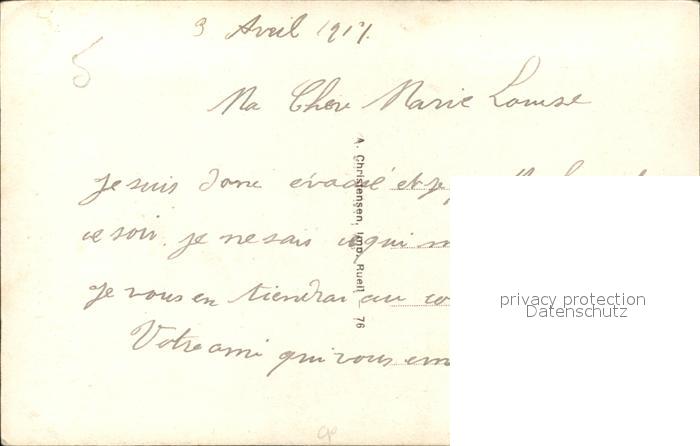 3 Avril 1917.
Ma Chere Marie Louise
Je suis donc évacué et je
ce soir. je ne sais ce qui m
je vous en tiendrai au co
Votre ami qui vous em
A. Christensen, Imp. Rueil — 76
privacy protection
Datenschutz